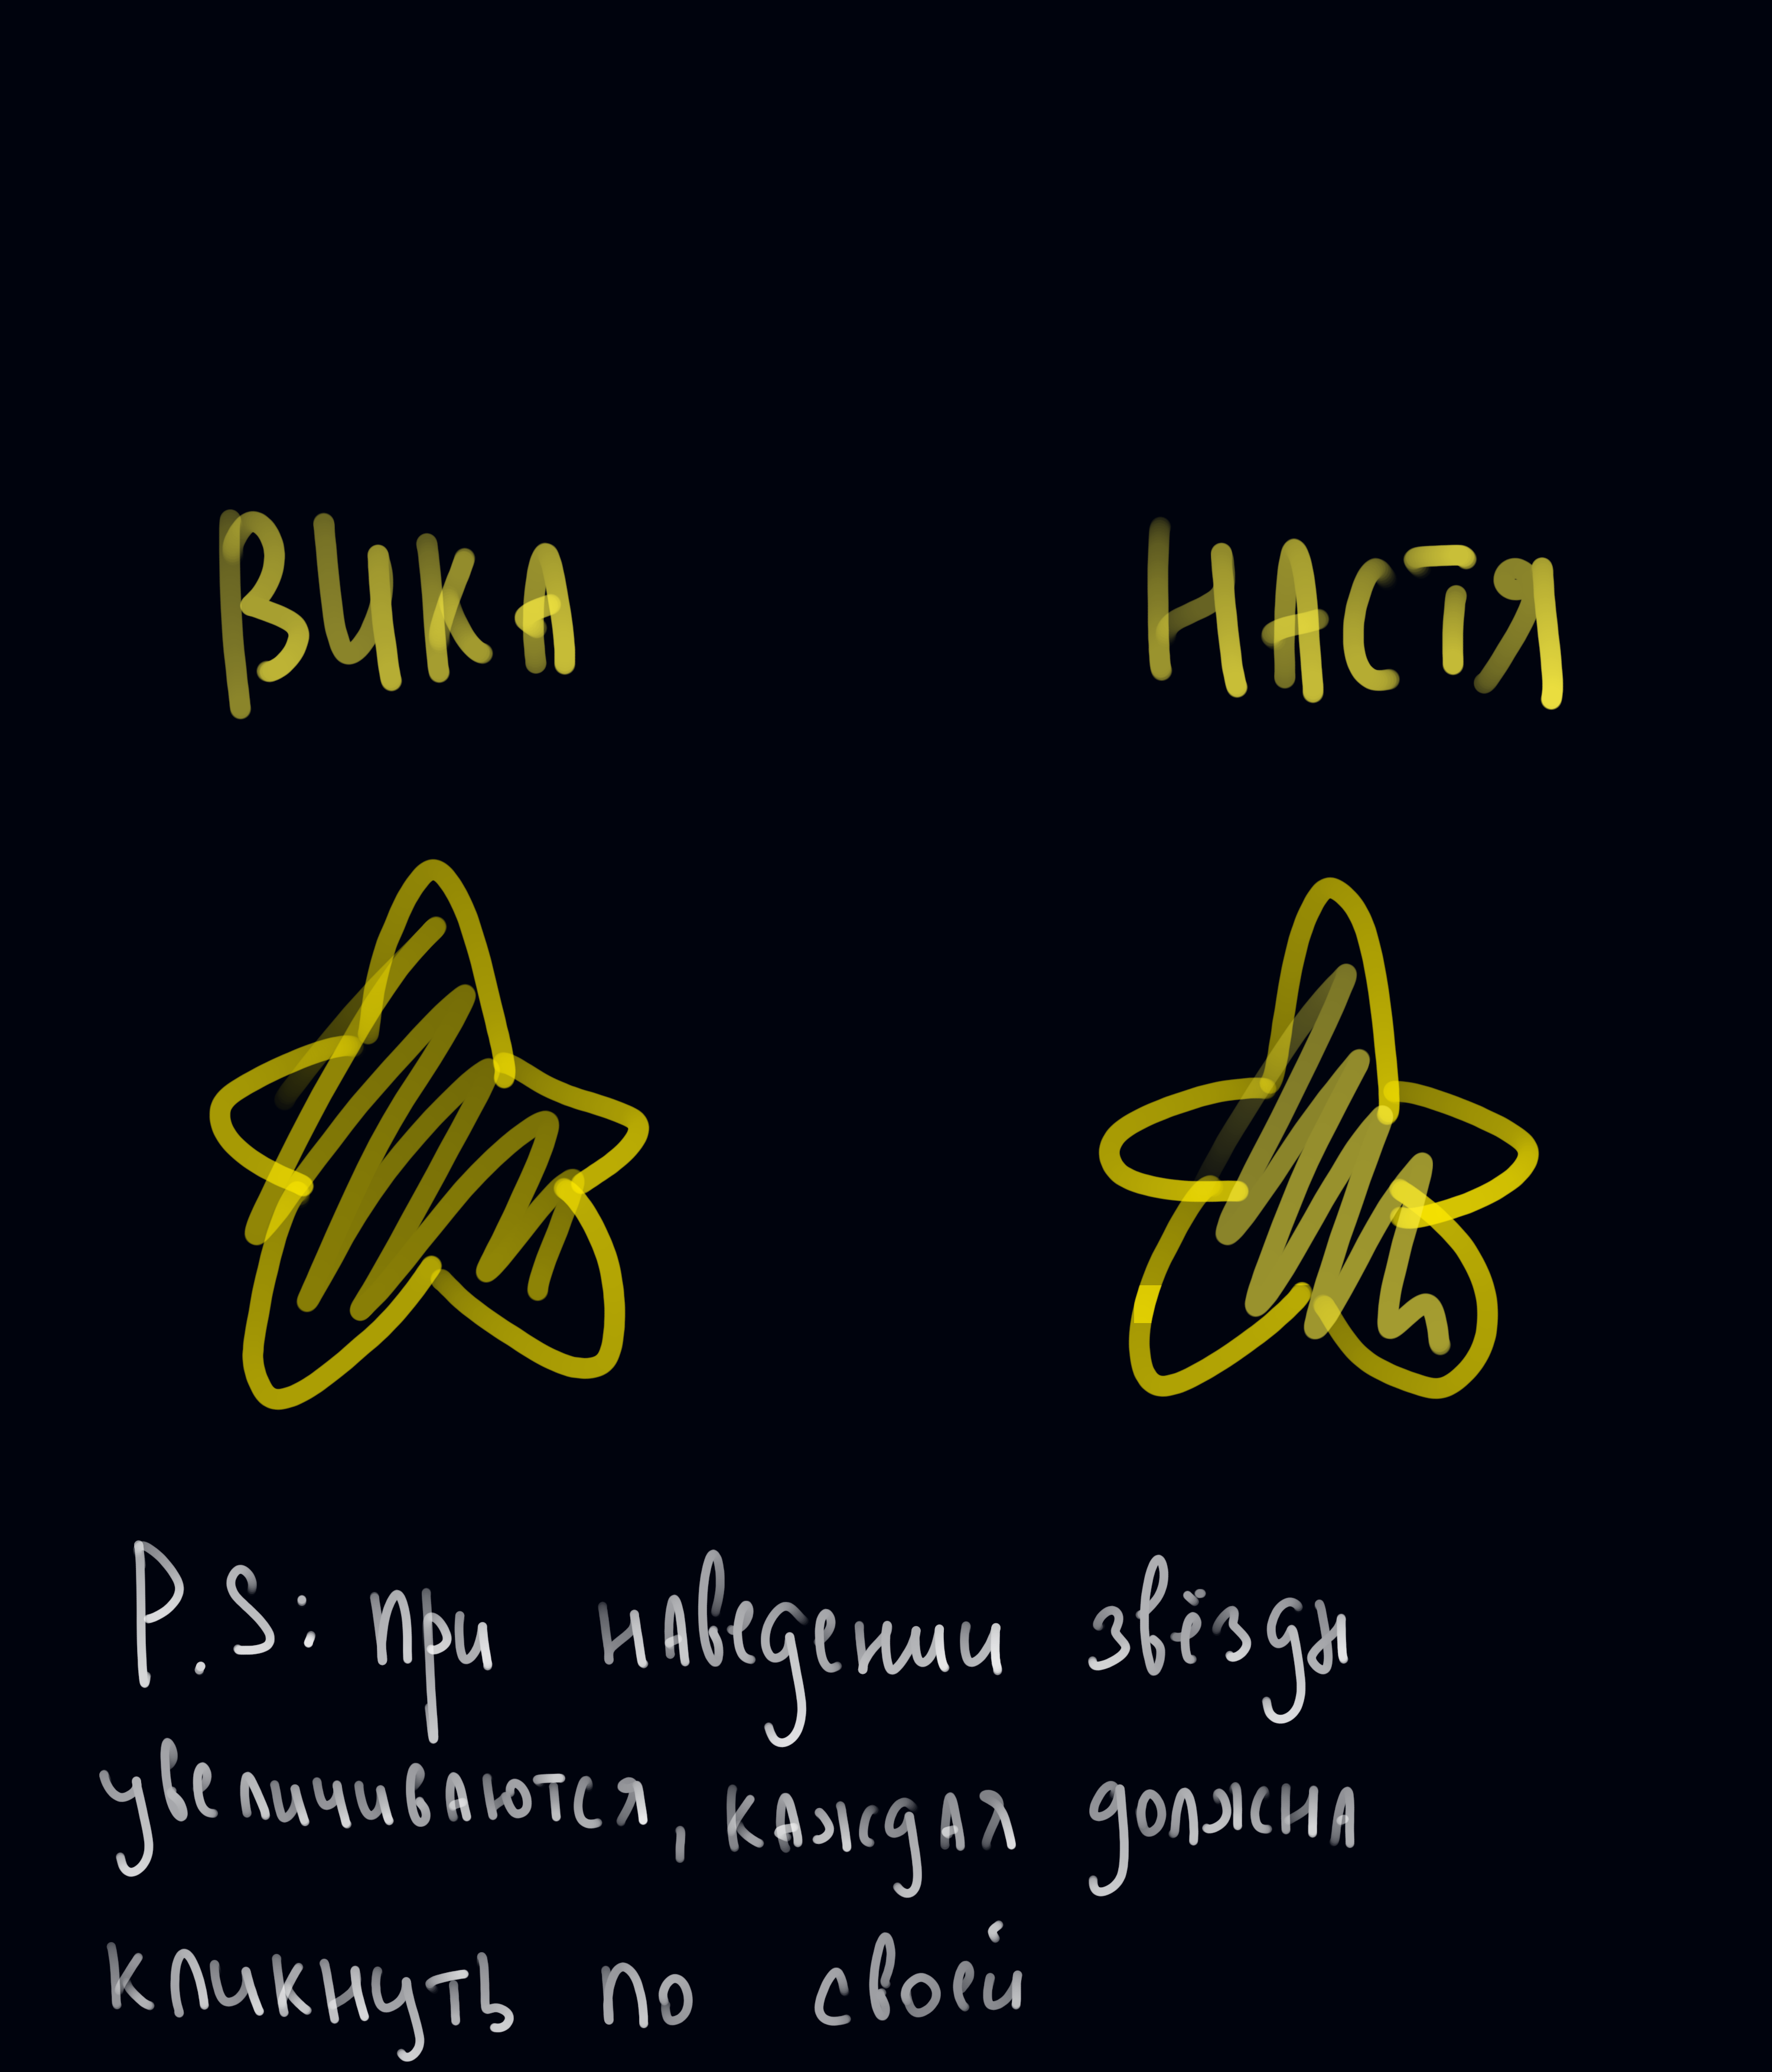 ВИКА НАСТЯ
P.S: при наведении звёзды
увеличиваются, каждая должна
кликнуть по своей